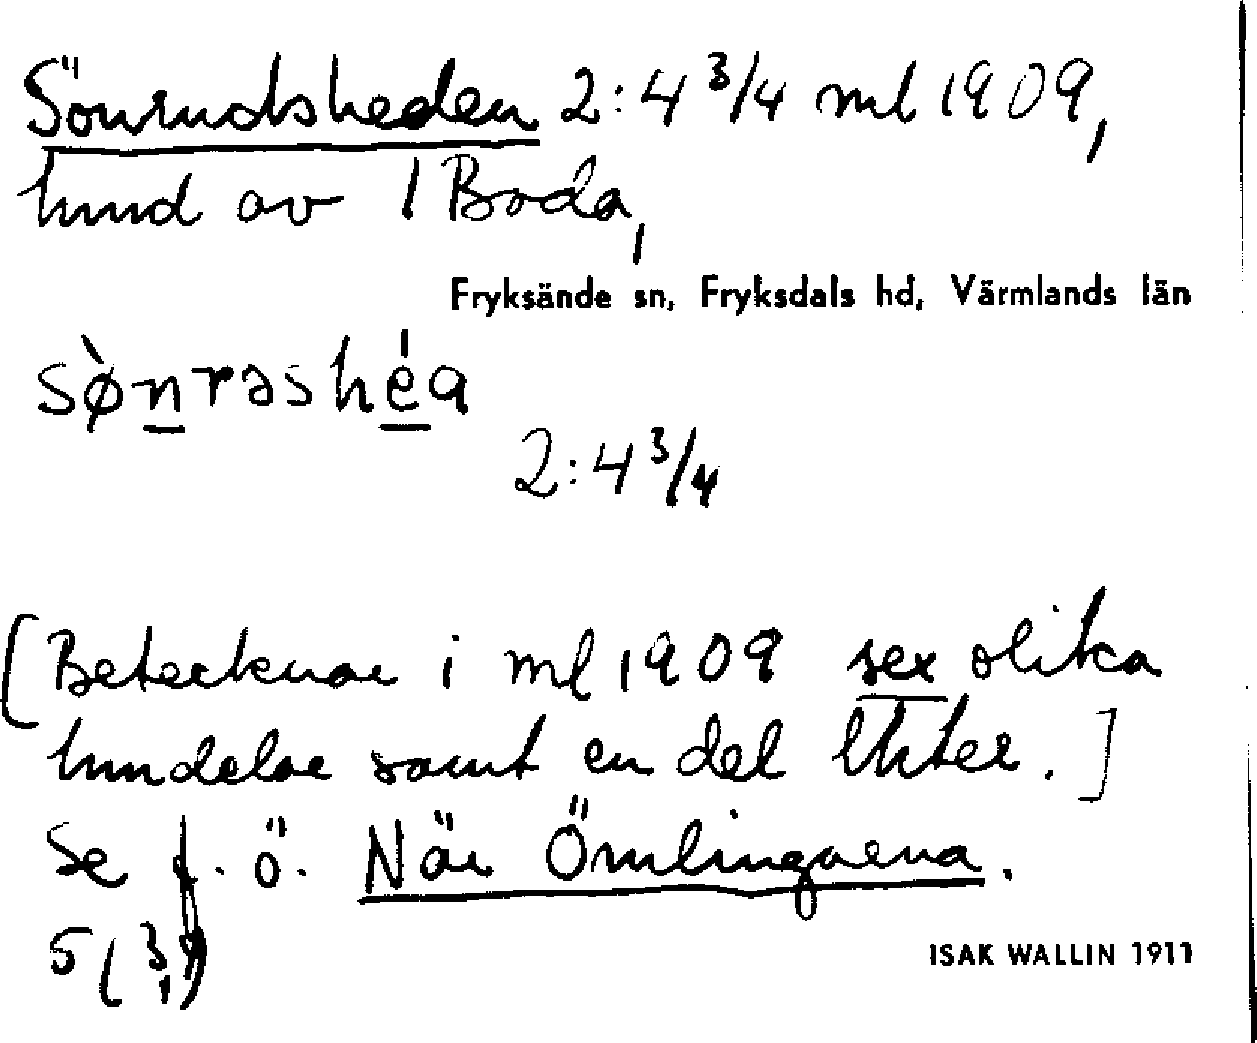 Sönrudsheden 2:4 3/4 ml 1909,
hmd av 1 Boda,
Fryksände sn, Fryksdals hd, Värmlands län
sø̀nrəshéa
2:4 3/4
[Betecknar i ml 1909 sex olika
hmdelar samt en del
Se f. ö. När Ömlingarna.
5 (3,
ISAK WALLIN 1911